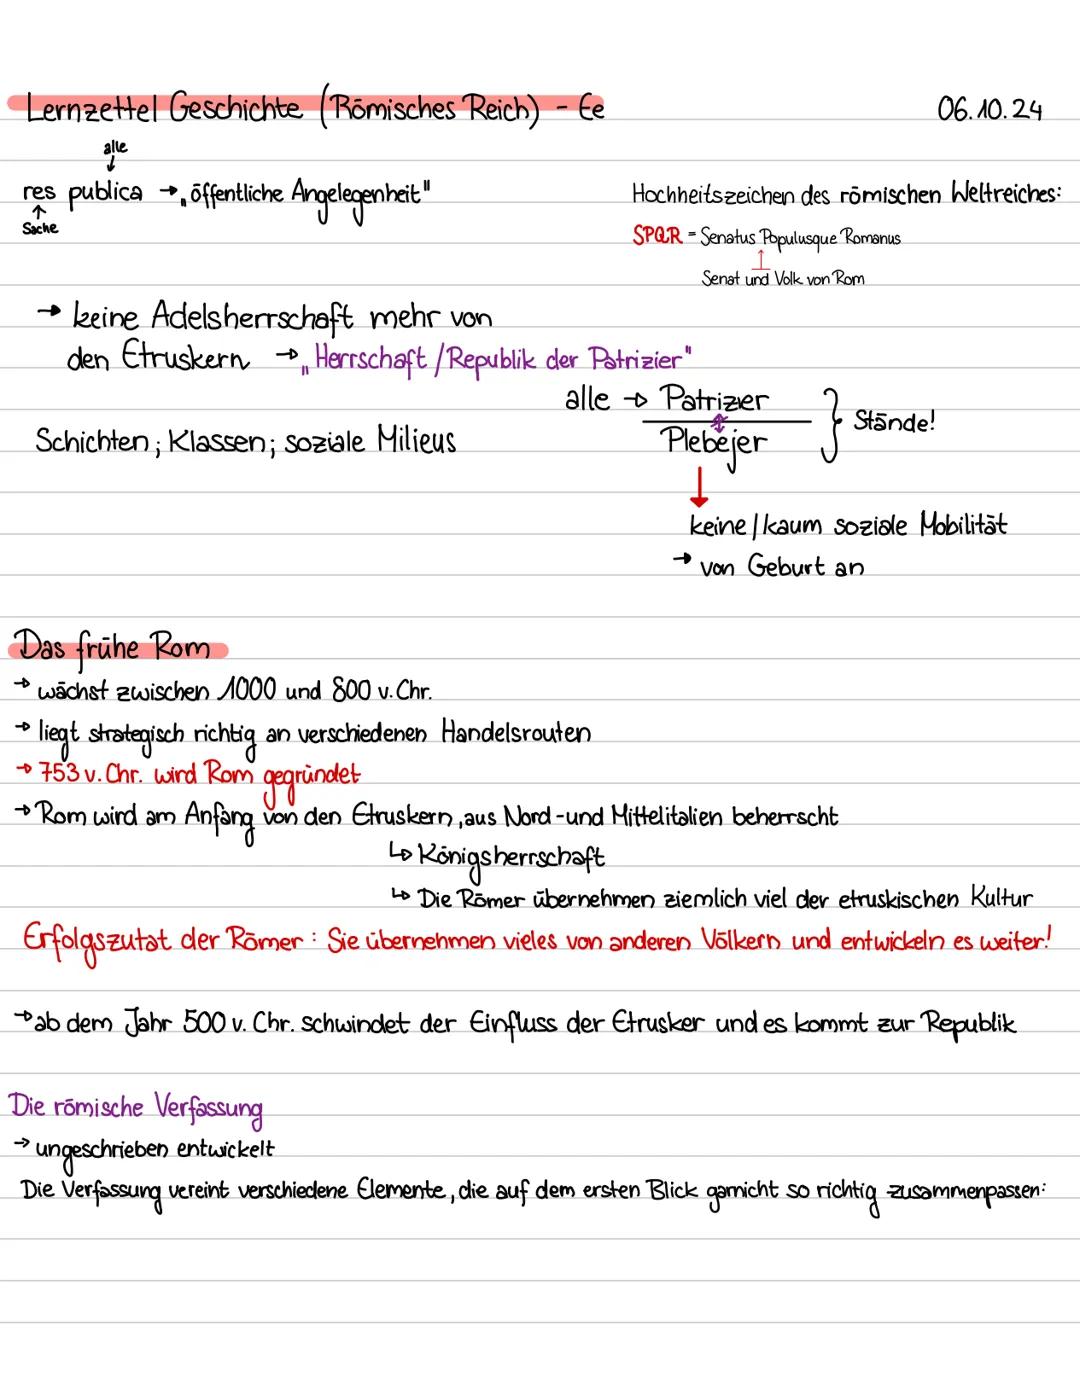 Lernzettel Geschichte (Römisches Reich) - Ee
06.10.24
alle
res publica → „öffentliche Angelegenheit"
Sache
Hochheitszeichen des römischen Weltreiches:
SPQR = Senatus Populusque Romanus
Senat und Volk von Rom
→ keine Adelsherrschaft mehr von
den Etruskern → „Herrschaft/Republik der Patrizier"
alle → Patrizier
Plebejer
} Stände!
Schichten; Klassen; soziale Milieus
keine/kaum soziale Mobilität
→ von Geburt an
Das frühe Rom
→ wächst zwischen 1000 und 800 v. Chr.
→ liegt strategisch richtig an verschiedenen Handelsrouten
→ 753 v. Chr. wird Rom gegründet
→ Rom wird am Anfang von den Etruskern, aus Nord-und Mittelitalien beherrscht
↳ Königsherrschaft
↳ Die Römer übernehmen ziemlich viel der etruskischen Kultur
Erfolgszutat der Römer: Sie übernehmen vieles von anderen Völkern und entwickeln es weiter!
→ ab dem Jahr 500 v. Chr. schwindet der Einfluss der Etrusker und es kommt zur Republik
Die römische Verfassung
→ ungeschrieben entwickelt
Die Verfassung vereint verschiedene Elemente, die auf dem ersten Blick garnicht so richtig zusammenpassen: